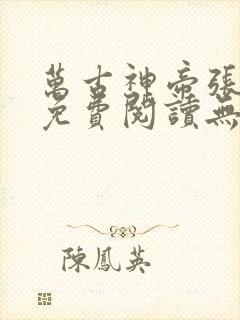 萬古神帝張
免費閱讀無
陳鳳英